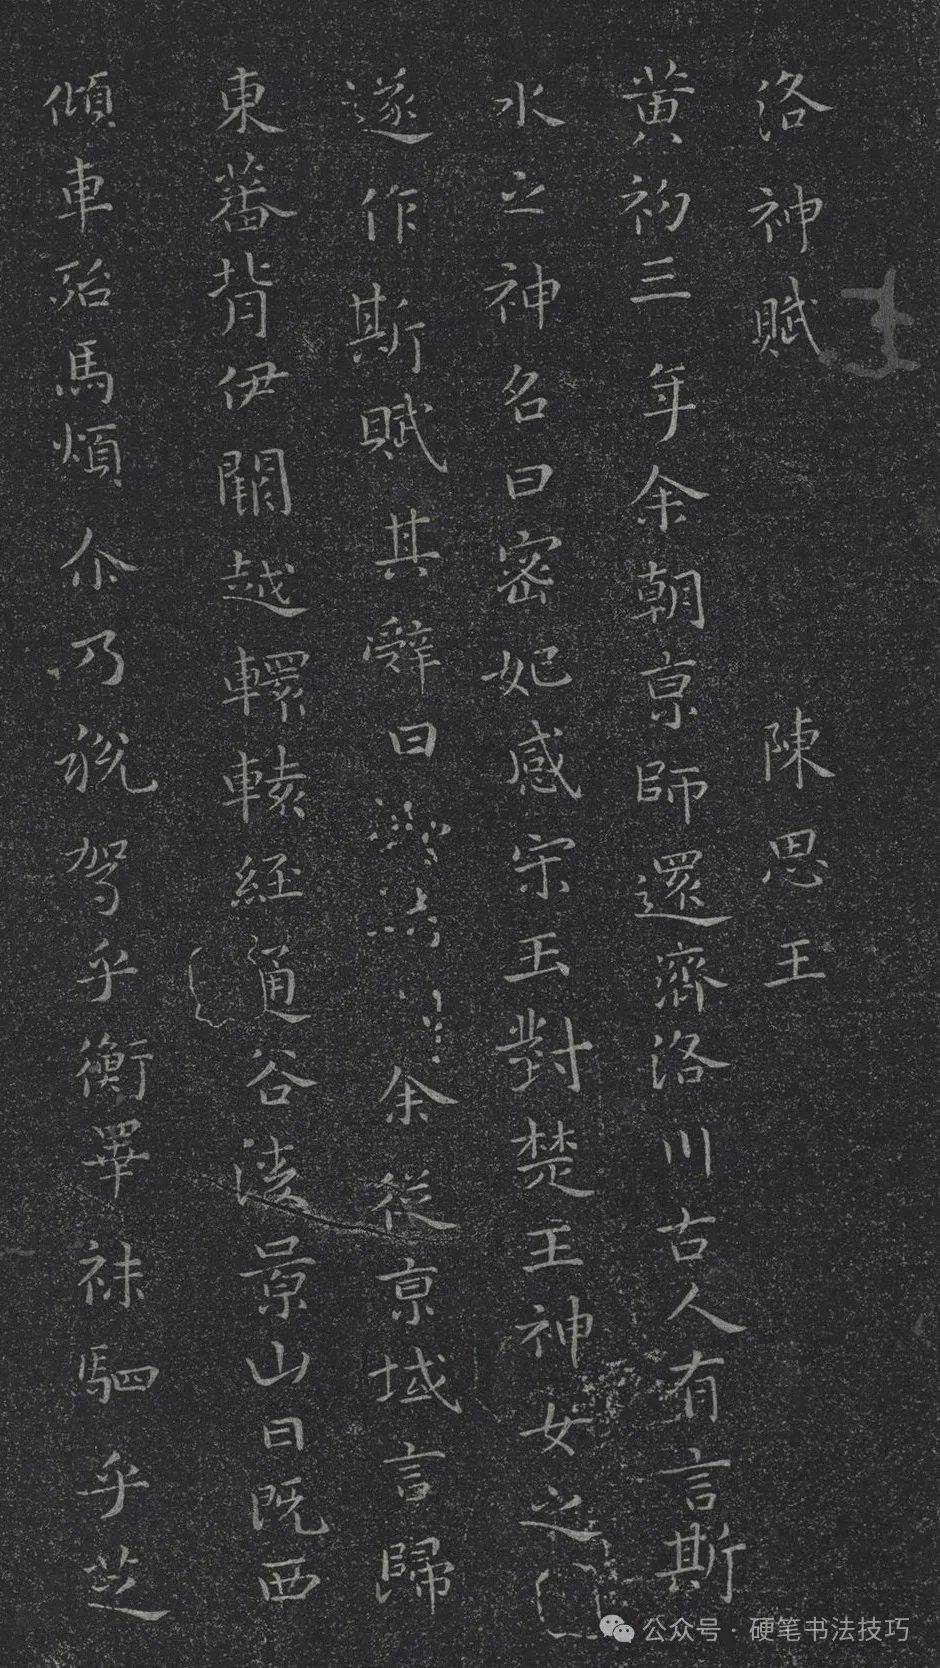 洛神賦 陳思王
黄初三年余朝亰師還濟洛川古人有言斯
水之神名曰密妃感宋玉對楚王神女之
遂作斯賦其辭曰余從亰域言歸
東蕃背伊闕越轘轅經通谷陵景山日既西
傾車殆馬煩尒乃税駕乎衡睪秣駟乎芝
公众号·硬笔书法技巧